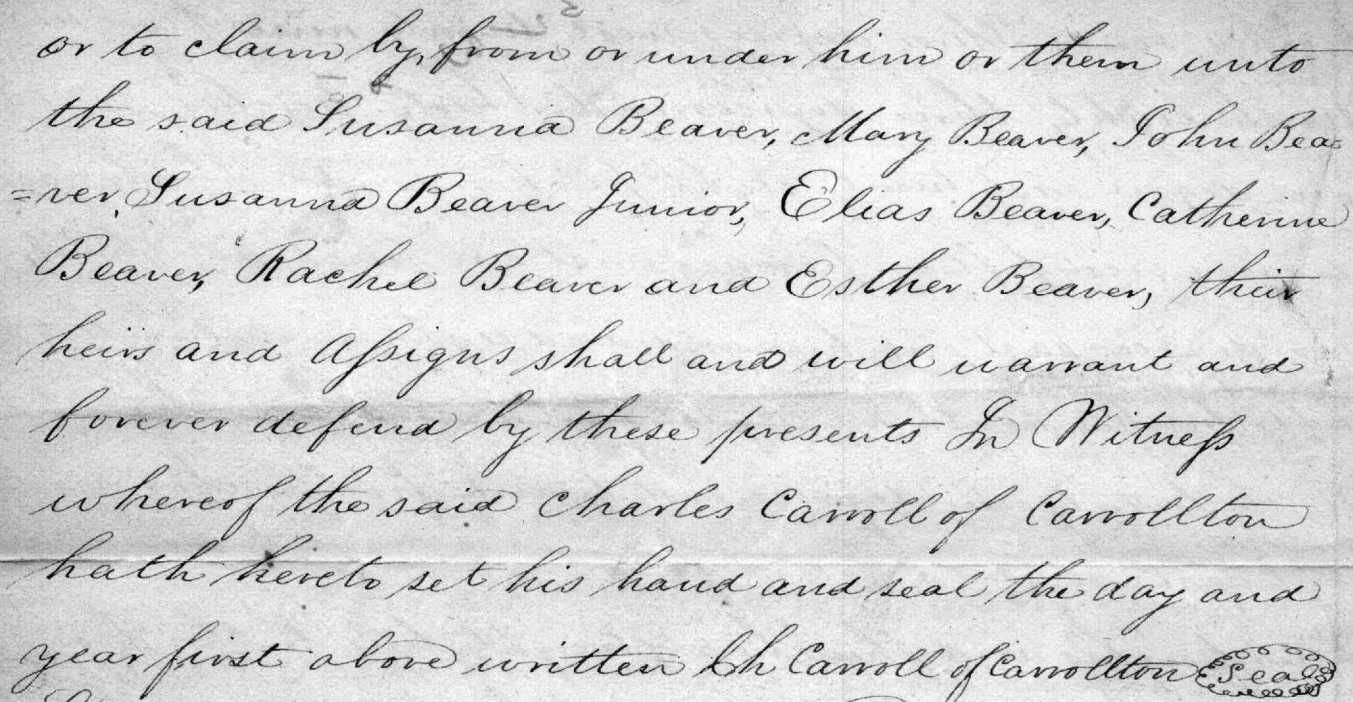 or to claim by, from or under him or them unto
the said Susanna Beaver, Mary Beaver, John Bea=
=ver, Susanna Beaver Junior, Elias Beaver, Catherine
Beaver, Rachel Beaver and Esther Beaver, their
heirs and Aſsigns shall and will warrant and
forever defend by these presents In Witneſs
whereof the said Charles Carroll of Carrollton
hath hereto set his hand and seal the day and
year first above written Ch Carroll of Carrollton Seal